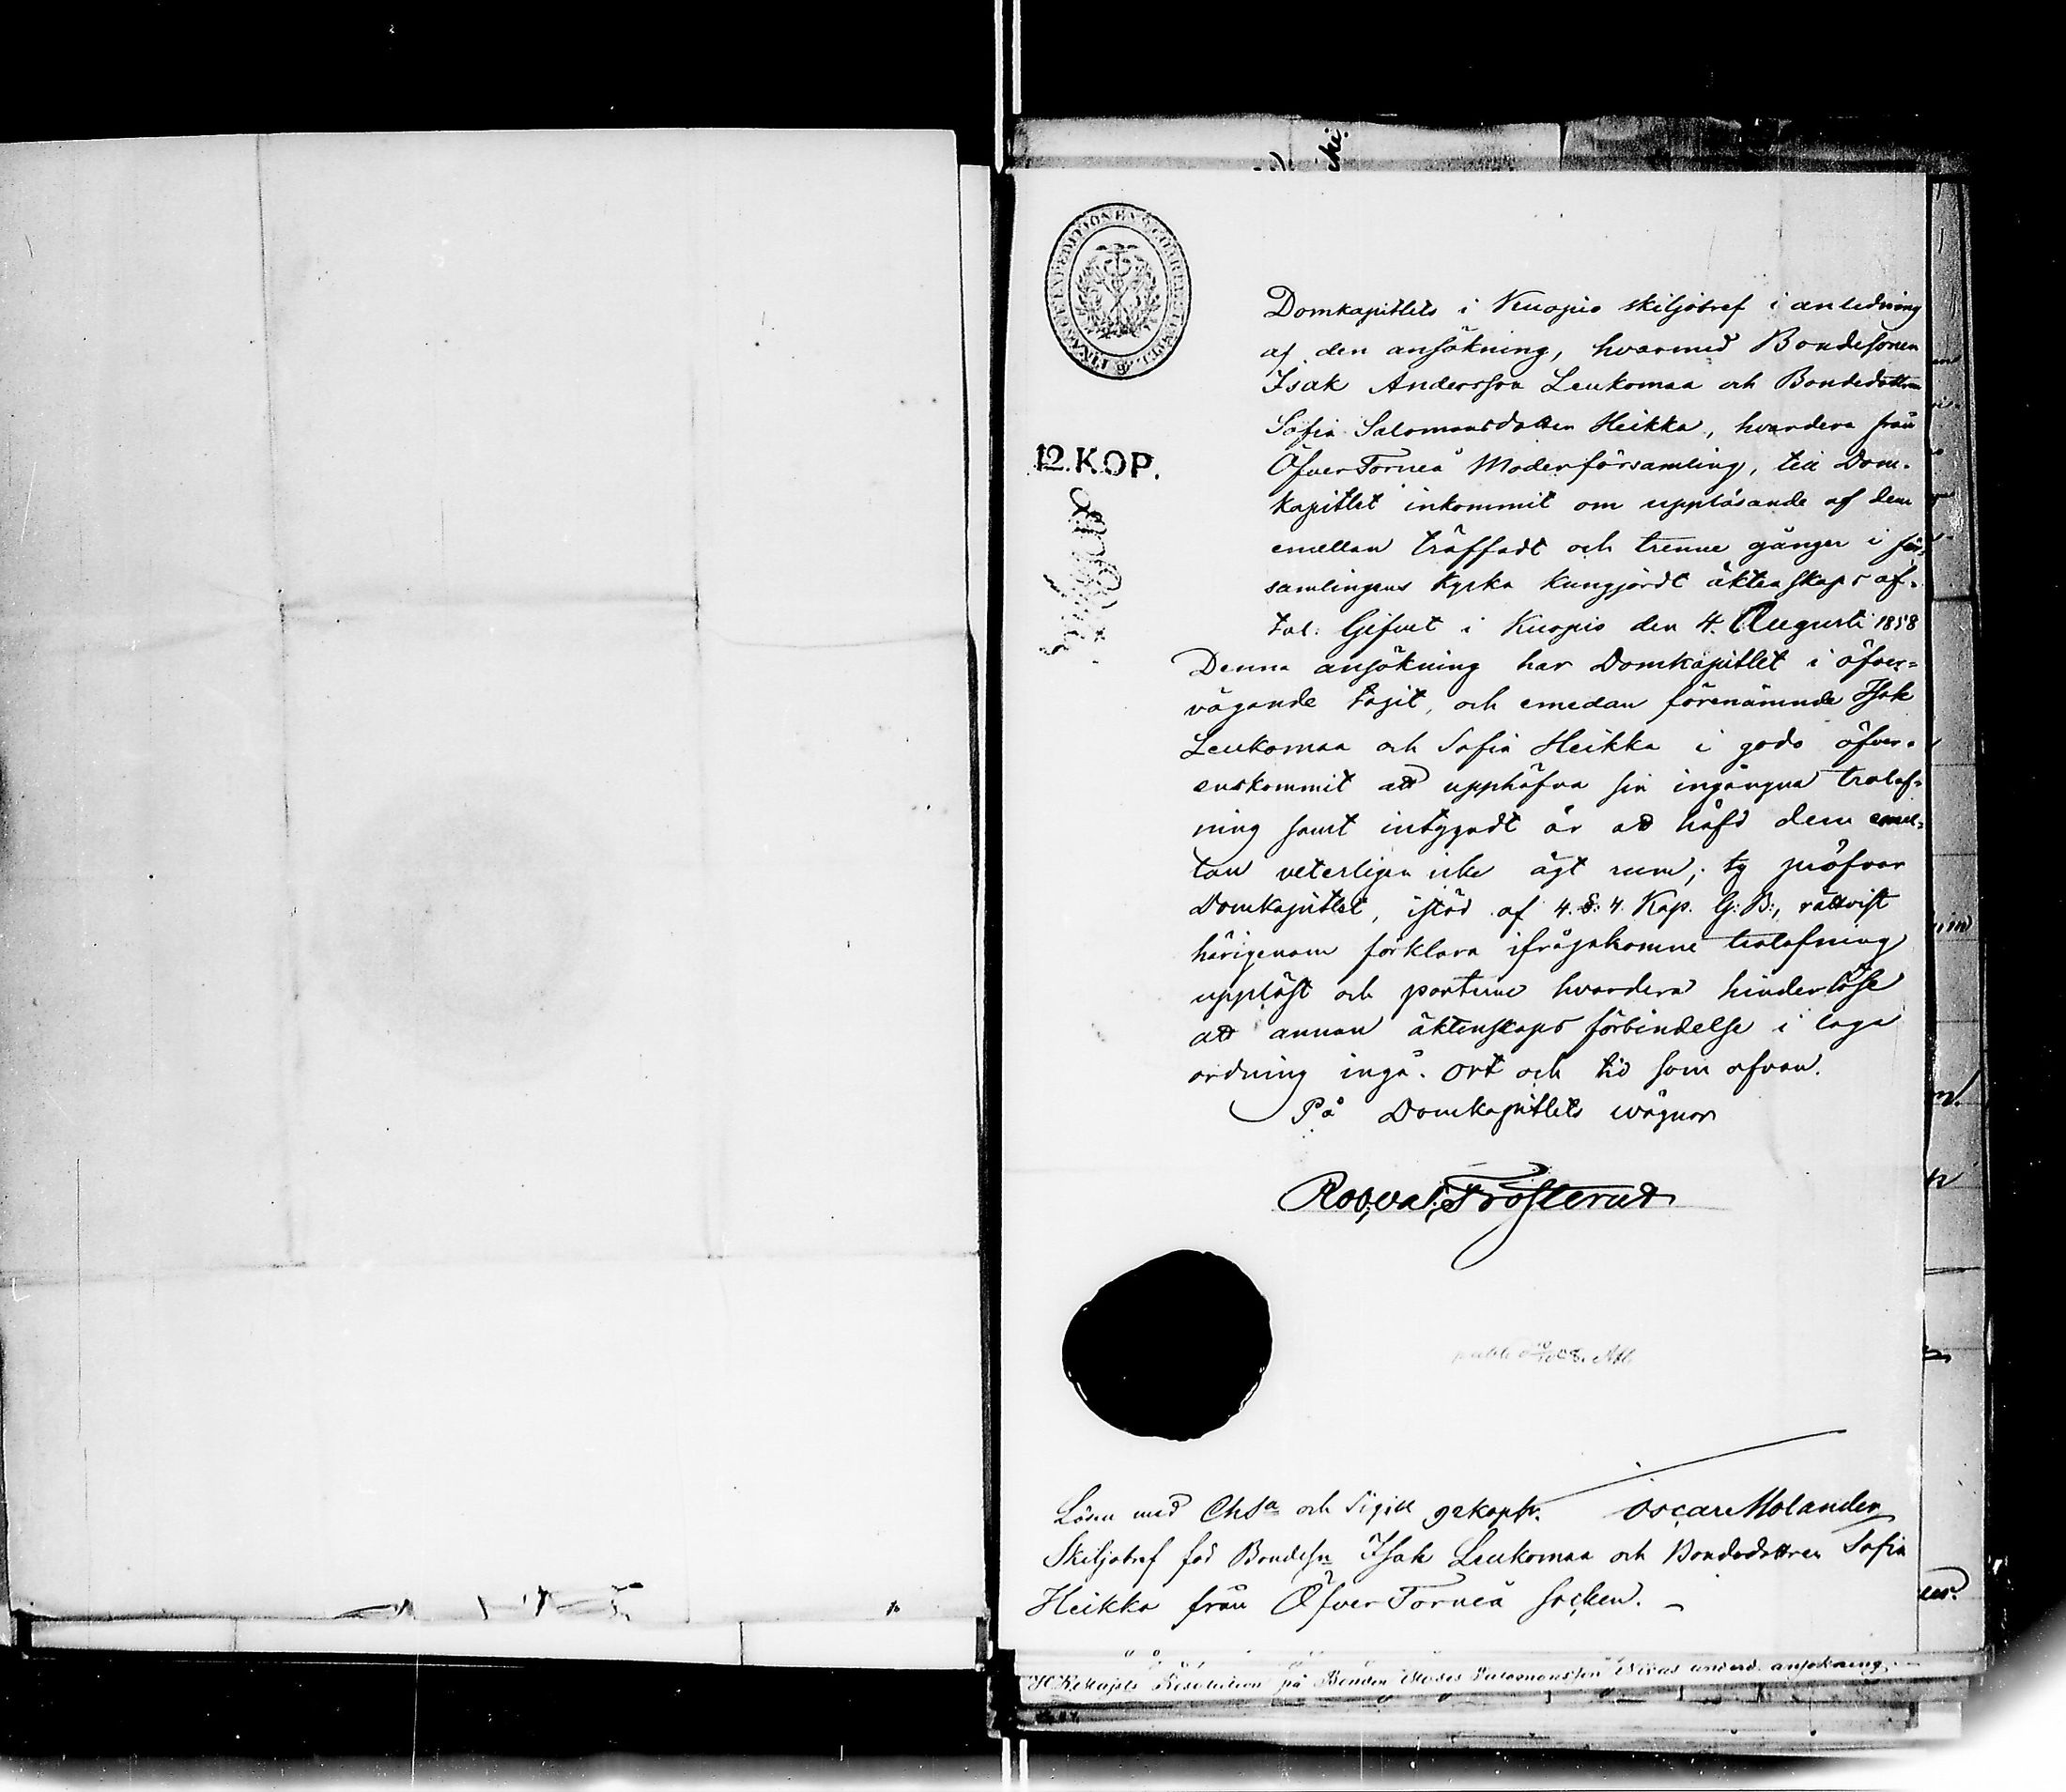 12. KOP.
Domkapitlets i Kuopio skiljobref i anledning
af den ansökning, hvarmed Bondesonen
Isak Andersson Leukomaa och Bondedottren
Sofia Salomonsdotter Heikka, hvardera från
ÖfverTorneå Moderförsamling, till Dom-
kapitlet inkommit om upplösande af dem
emellan träffadt och trenne gånger i för-
samlingens Kyrka kungjordt äktenskaps af-
tal. Gifvet i Kuopio den 4. Augusti 1858
Denna ansökning har Domkapitlet i öfver=
vägande tagit, och emedan förenämnde Isak
Leukomaa och Sofia Heikka i godo öfver-
enskommit att upphäfva sin ingångna trolof-
ning samt intygadt är att häfd dem emel-
lan veterligen icke ägt rum; ty pröfvar
Domkapitlet, istöd af 4. §. 4 Kap. G: B:, rättvist
härigenom förklara ifrågakomne trolofning
upplöst och parterne hvardera hinderlöse
att annan äktenskaps förbindelse i laga
ordning ingå. Ort och tid som ofvan.
På Domkapitlets vägnar
Frosterus
Lösen med Cha och Sigill 92 kop. Oscar Molander
Skiljobref för Bondesn Isak Leukomaa och Bondedottren Sofia
Heikka från ÖfverTorneå socken. –
Resolution på Bonden Moses Salomonsson underd. ansökning